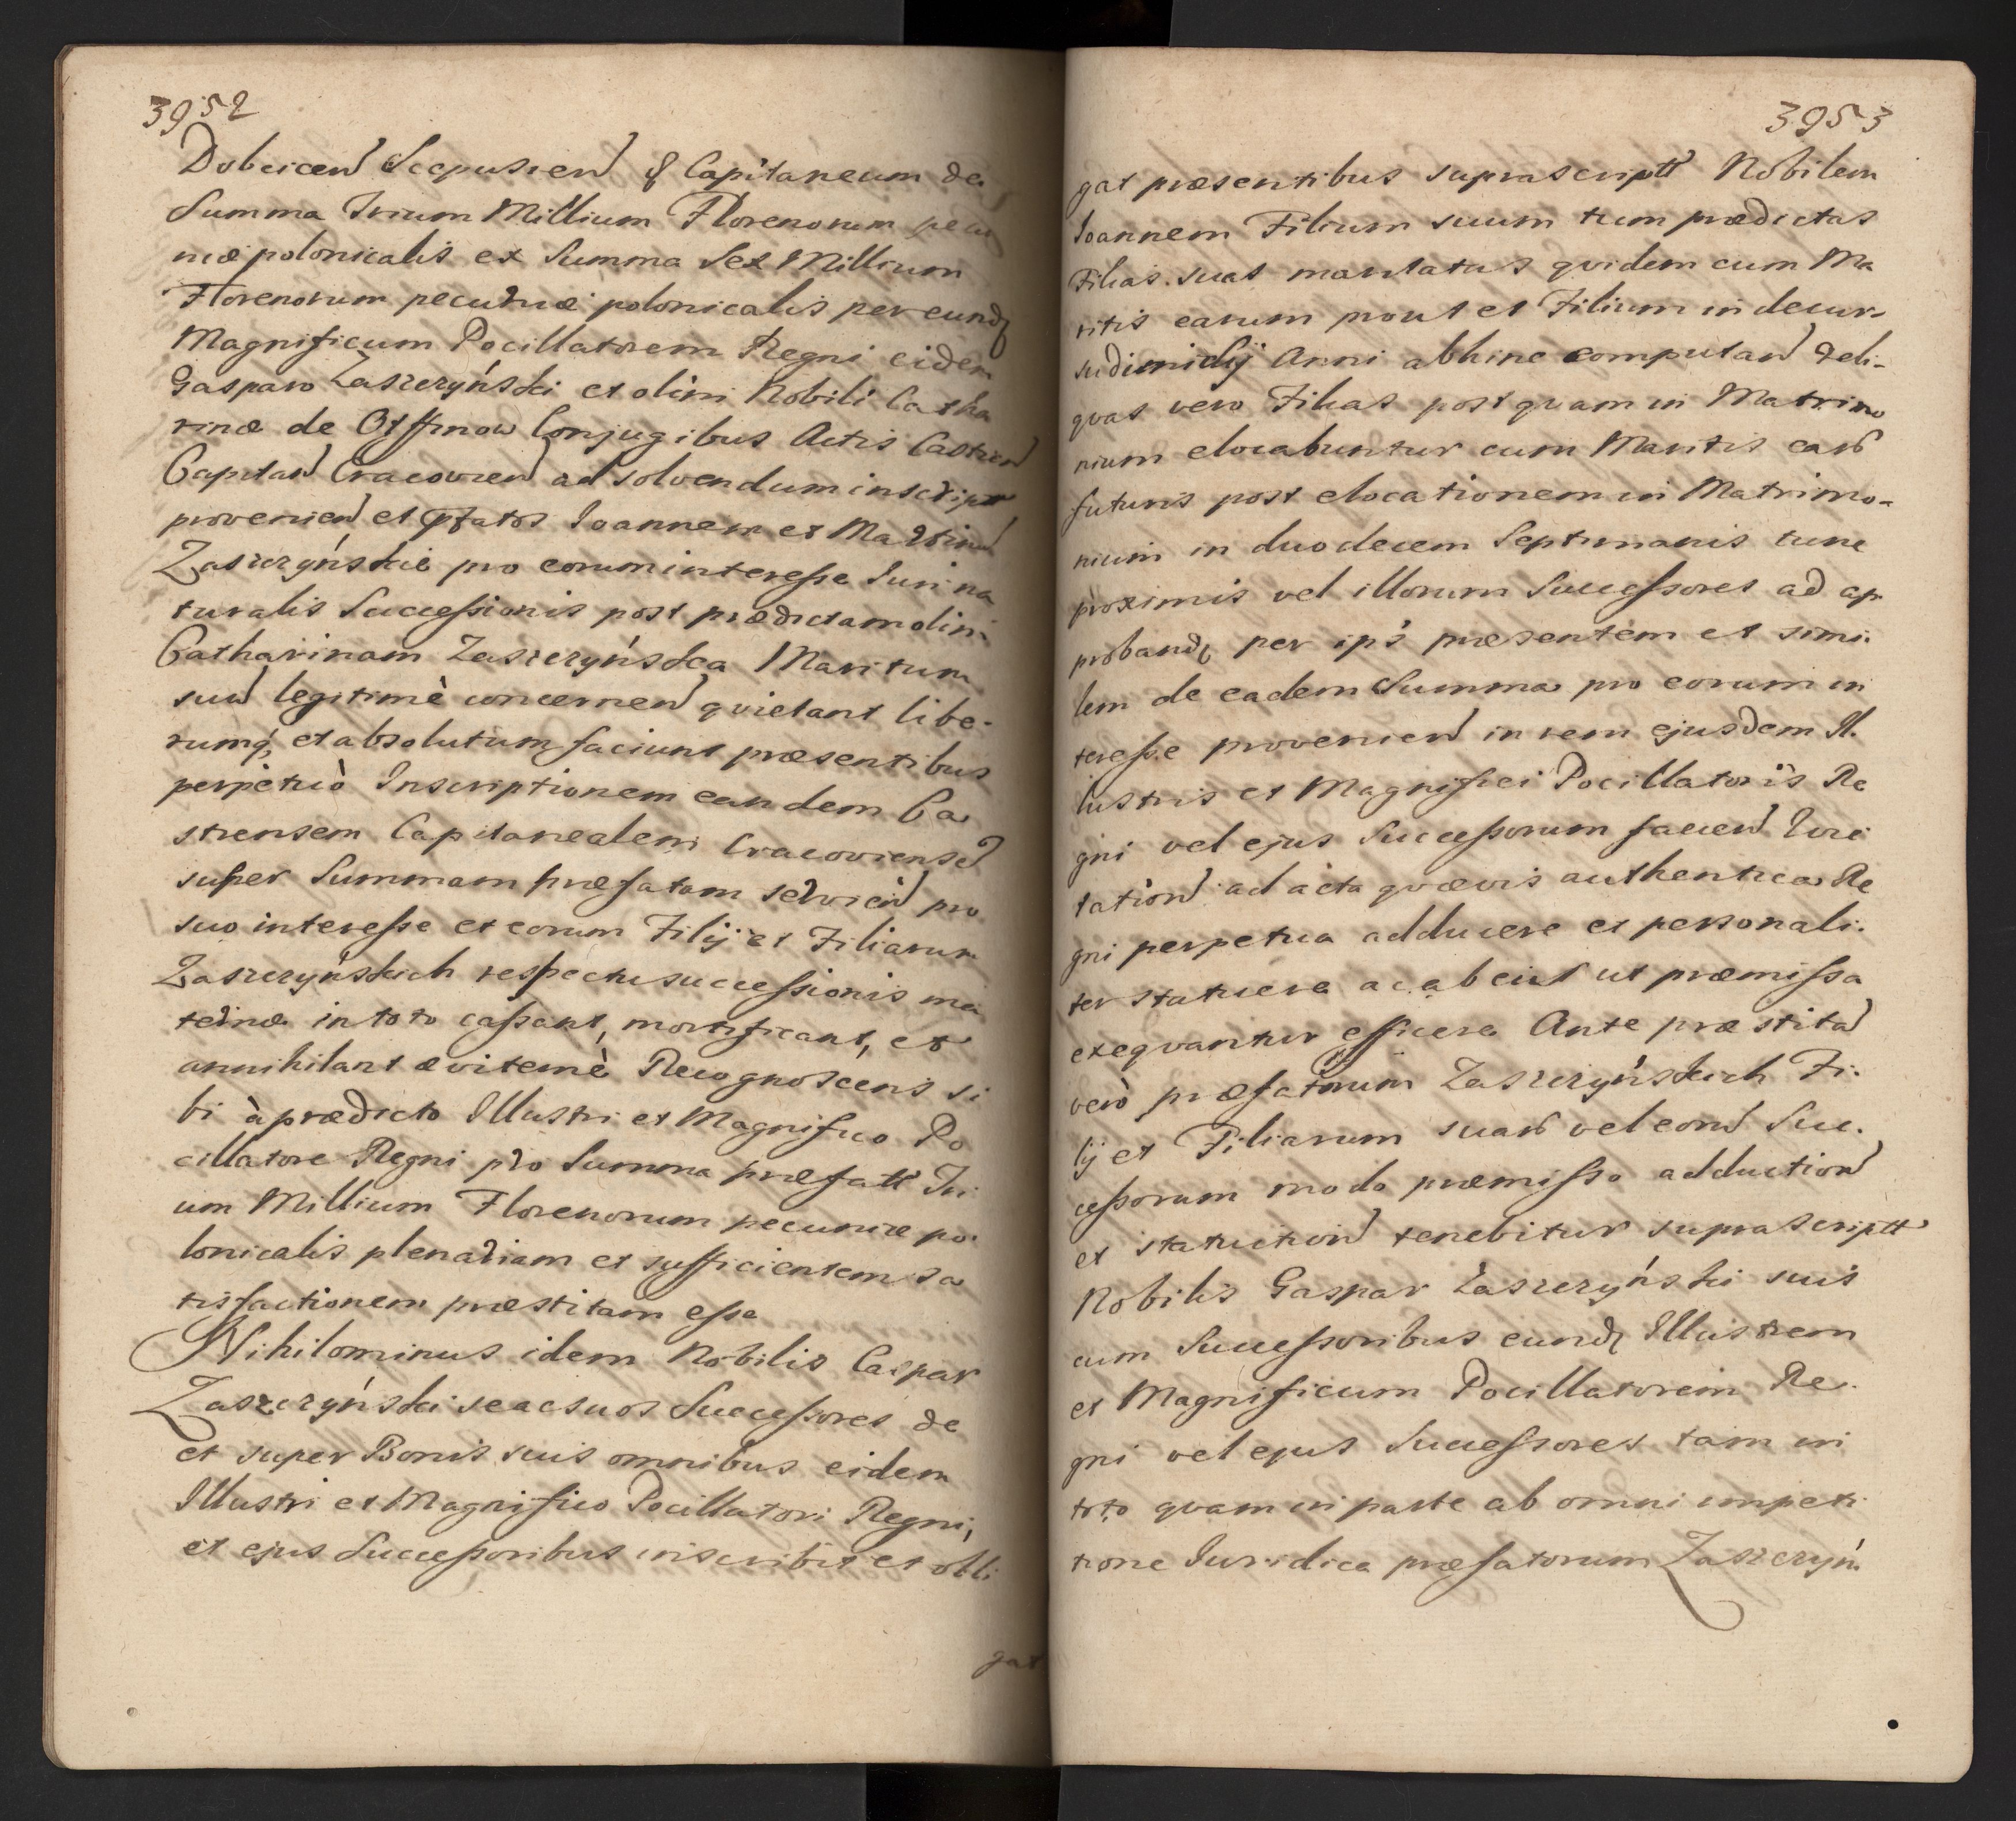 3952
Dobcicen Scepusien & Capitaneum de
Summa Trium Millium Florenorum pecu
niæ polonicalis ex Summa Sex Millium
Florenorum pecuniæ polonicalis per eundq
Magnificum Pocillatorem Regni eidem
Gasparo Zaszczyński et olim Nobili Catha
rinæ de Ossinow Conjugibus Actis Castren
Capitan Cracovien ad solvendum inscript
provenien et pfatos Joannem et Martin
Zaszczyńskie pro eorum interesse Juri na
turalis Successionis post prædictam olim
Catharinam Zaszczyńska Maritum
suu legitimè concernen quietant libe-
rumq et absolutum faciunt præsentibus
perpetuò Inscriptionem eandem Ca
strensem Capitanealem Cracoviense
super Summam præfatam servien pro
suo interesse et eorum Filij et Filiarum
Zaszczyńskich respectu successionis ma
ternæ in toto cassant, mortificant, et
annihilant æviternè Recognoscens si
bi à prædicto Illustri et Magnifico Po
cillatore Regni pro Summa præfatt Tri
um Millium Florenorum pecuniæ po
lonicalis plenariam et sufficientem sa
tisfactionem præstitam esse
Nihilominus idem Nobilis Caspar
Zaszczyński se ac suos Successores de
et super Bonis suis omnibus eidem
Illustri et Magnifico Pocillatori Regni,
et ejus Successoribus inscribit et obli
gat
3953
gat præsentibus suprascriptt Nobilem
Joannem Filium suum tum prædictas
Filias suas maritatas quidem cum Ma
ritis earum prout et Filium in decur-
su dimidij Anni abhinc computan Reli-
quas vero Filias postquam in Matrimo
nium elocabuntur cum Maritis earu
futuris post elocationem in Matrimo-
nium in duodecem Septimanis tunc
proximis vel illorum Successores ad ap
probandq per ips præsentem et simi
lem de eadem Summa pro eorum in
teresse provenien in rem ejusdem Il.
lustris et Magnifici Pocillatoris Re
gni vel ejus Successorum facien
tation ad acta quævis authentica Re
gni perpetua adducere et personali.
ter statuere ac ab eis ut præmissa
exequantur efficere Ante præstita
verò præfatorum Zaszczyńskich Fi.
lij et Filiarum suaru vel eoru Suc.
cessorum modo præmisso adduction
et statution tenebitur suprascriptt
Nobilis Gaspar Zaszczyński suis
cum Successoribus eundq Illustrem
et Magnificum Pocillatorem Re.
gni vel ejus Successores tam in
toto quam in parte ab omni impeti
tione Juridica præfatorum Zaszczyń